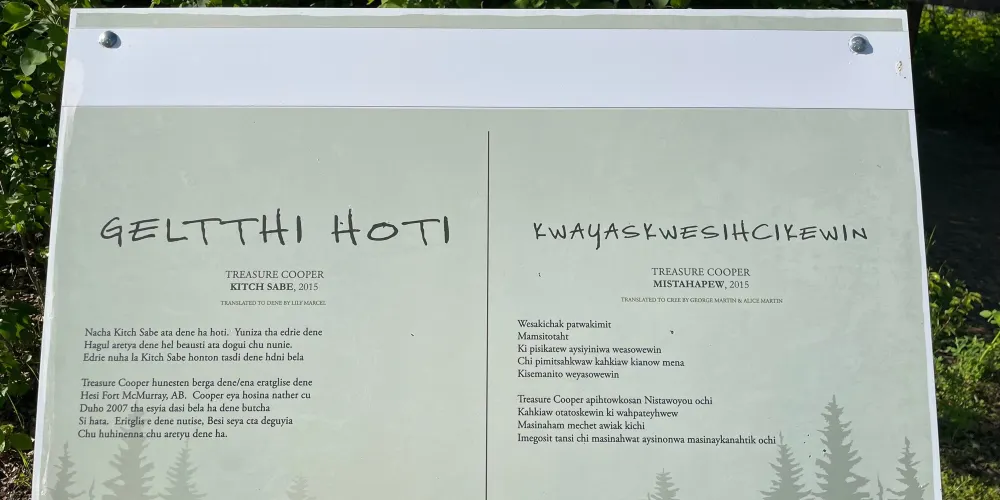 GELTTHI HOTI
TREASURE COOPER
KITCH SABE, 2015
TRANSLATED TO DENE BY LILY MARCEL
Nacha Kitch Sabe ata dene ha hoti. Yuniza tha edrie dene
Hagul aretya dene hel beausti ata dogui chu nunie.
Edrie nuha la Kitch Sabe honton tasdi dene hdni bela
Treasure Cooper hunesten berga dene/ena eratglise dene
Hesi Fort McMurray, AB. Cooper eya hosina nather cu
Duho 2007 tha esyia dasi bela ha dene butcha
Si hata. Eritglis e dene nutise, Besi seya cta deguyia
Chu huhinenna chu aretyu dene ha.
KWAYASKWESIHCIKEWIN
TREASURE COOPER
MISTAHAPEW, 2015
TRANSLATED TO CREE BY GEORGE MARTIN & ALICE MARTIN
Wesakichak patwakimit
Mamsitotaht
Ki pisikatew aysiyiniwa weasowewin
Chi pimitsahkwaw kahkiaw kianow mena
Kisemanito weyasowewin
Treasure Cooper apihtowkosan Nistawoyou ochi
Kahkiaw otatoskewin ki wahpateyhwew
Masinaham mechet awiak kichi
Imegosit tansi chi masinahwat aysinonwa masinaykanahtik ochi